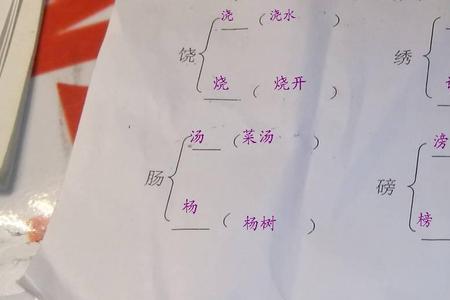 浇（浇水）
饶
烧（烧开）
绣
汤（菜汤）
肠
杨（杨树）
滂
磅
榜